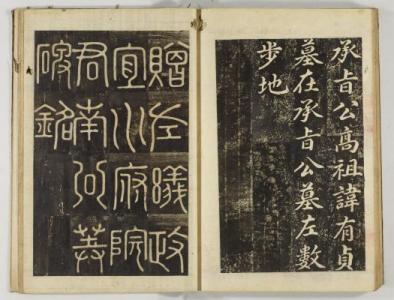 承旨公高祖諱有貞
墓在承旨公墓左數
步地
贈左議政
宜川府院
君南公墓
碑銘